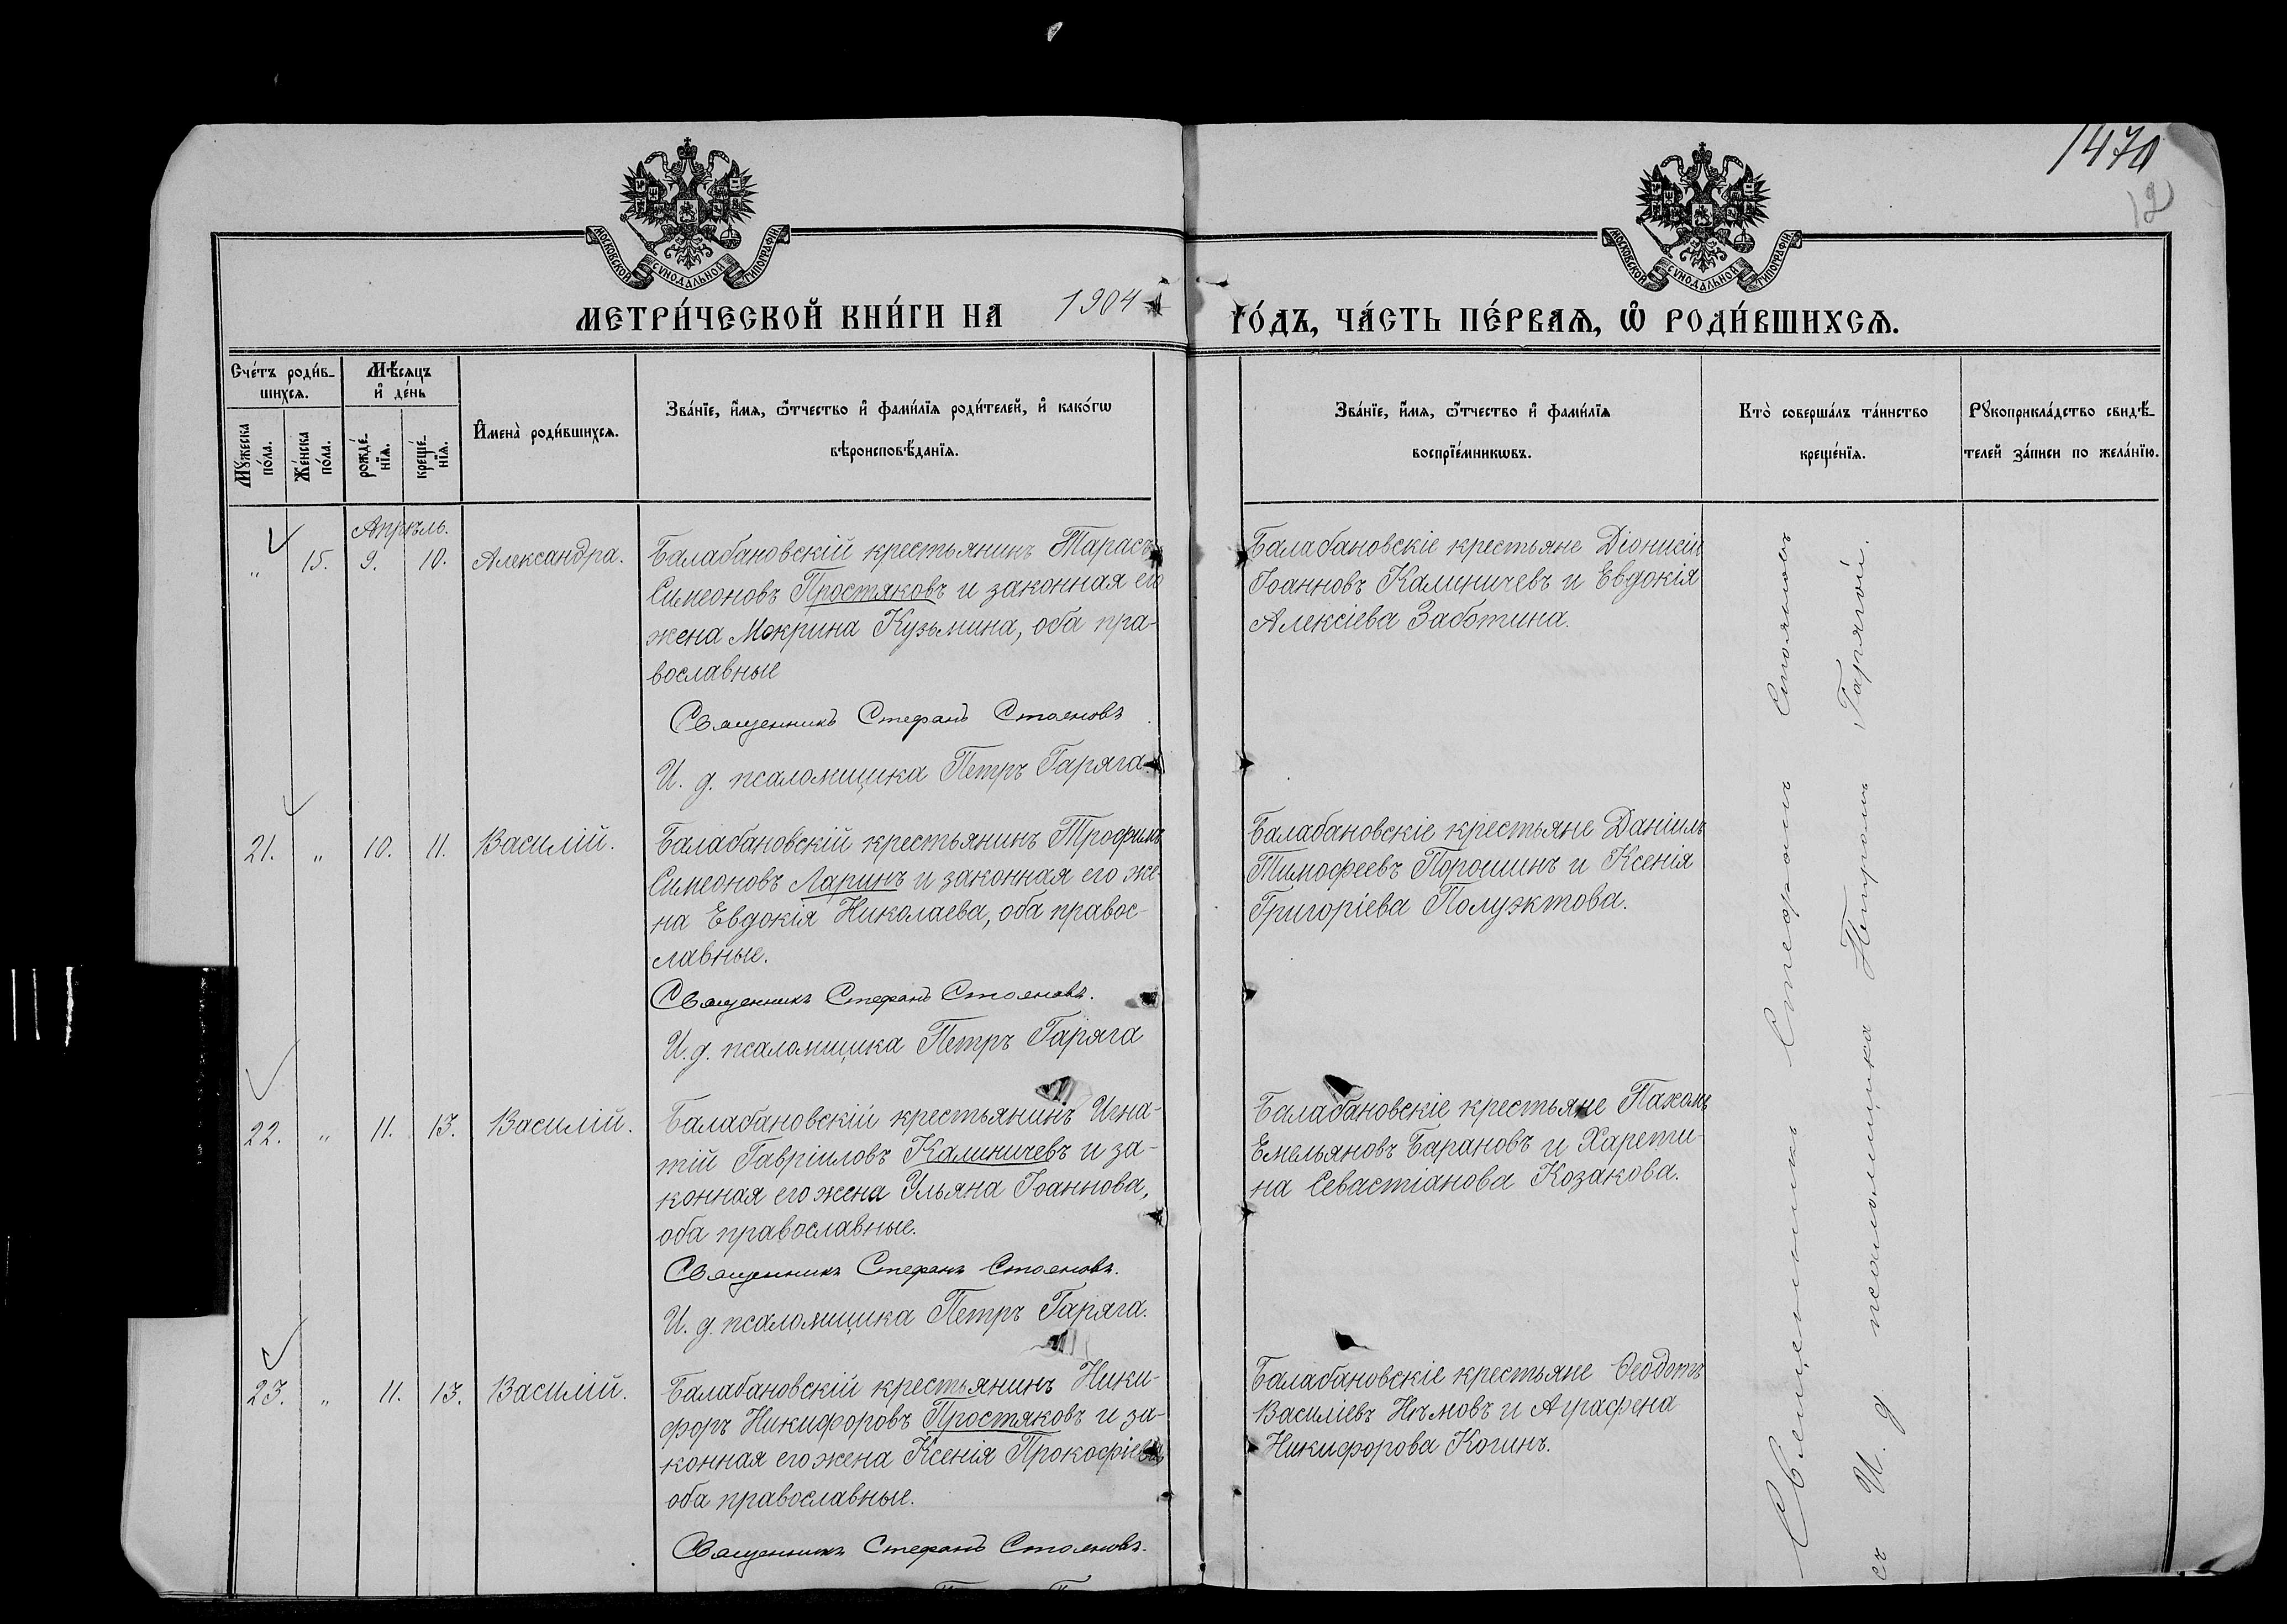 1470
12
МОСКОВСКОЙ СѴНОДАЛЬНОЙ ТИПОГРАФІИ
МОСКОВСКОЙ СѴНОДАЛЬНОЙ ТИПОГРАФІИ
МЕТРИ́ЧЕСКОЙ КНИ́ГИ НА 1904 ГО́ДЪ, ЧА́СТЬ ПЕ́РВАѦ, Ѡ҆ РОДИ́ВШИХСѦ.
Сче́тъ роди́в-
шихсѧ.
Мꙋ́жеска
по́ла.
Же́нска
по́ла.
Мѣ́сѧцъ
и҆ де́нь
рожде́-
нїѧ.
креще́-
нїѧ.
И҆мена̀ роди́вшихсѧ.
Зва́нїе, и҆́мѧ, ѻ҆́тчество и҆ фами́лїѧ роди́телей, и҆ како́гѡ
вѣроисповѣ́данїѧ.
Зва́нїе, и҆́мѧ, ѻ҆́тчество и҆ фами́лїѧ
воспрїе́мникѡвъ.
Кто̀ соверша́лъ та́инство
креще́нїѧ.
Рꙋкоприкла́дство свидѣ́-
телей за́писи по жела́нїю.
Апрѣль.
„ 15. 9. 10. Александра.
Балабановскій крестьянинъ Тарасъ
Симеоновъ Простяковъ и законная его
жена Мокрина Кузьмина, оба пра-
вославные
Священникъ Стефанъ Стояновъ
И. д. псаломщика Петръ Гаряга.
Балабановскіе крестьяне Діонисій
Іоанновъ Калиничевъ и Евдокія
Алексіева Заботина.
21. „ 10. 11. Василій.
Балабановскій крестьянинъ Трофимъ
Симеоновъ Ларинъ и законная его же-
на Евдокія Николаева, оба правос-
лавные.
Священникъ Стефанъ Стояновъ.
И. д. псаломщика Петръ Гаряга
Балабановскіе крестьяне Даніилъ
Тимофеевъ Порошинъ и Ксенія
Григоріева Полуэктова.
22. „ 11. 13. Василій.
Балабановскій крестьянинъ Игна-
тій Гавріиловъ Калиничевъ и за-
конная его жена Ульяна Іоаннова,
оба православные.
Священникъ Стефанъ Стояновъ.
И. д. псаломщика Петръ Гаряга.
Балабановскіе крестьяне Пахомъ
Емельяновъ Барановъ и Харети-
на Севастіанова Козакова.
23. „ 11. 13. Василій.
Балабановскій крестьянинъ Ники-
форъ Никифоровъ Простяковъ и за-
конная его жена Ксенія Прокофіева
оба православные.
Священникъ Стефанъ Стояновъ.
Балабановскіе крестьяне Ѳеодотъ
Василіевъ Нѣмовъ и Аграфена
Никифорова Когинъ.
Священникъ Стефанъ Стояновъ
съ И. д псаломщика Петромъ Гарягой.